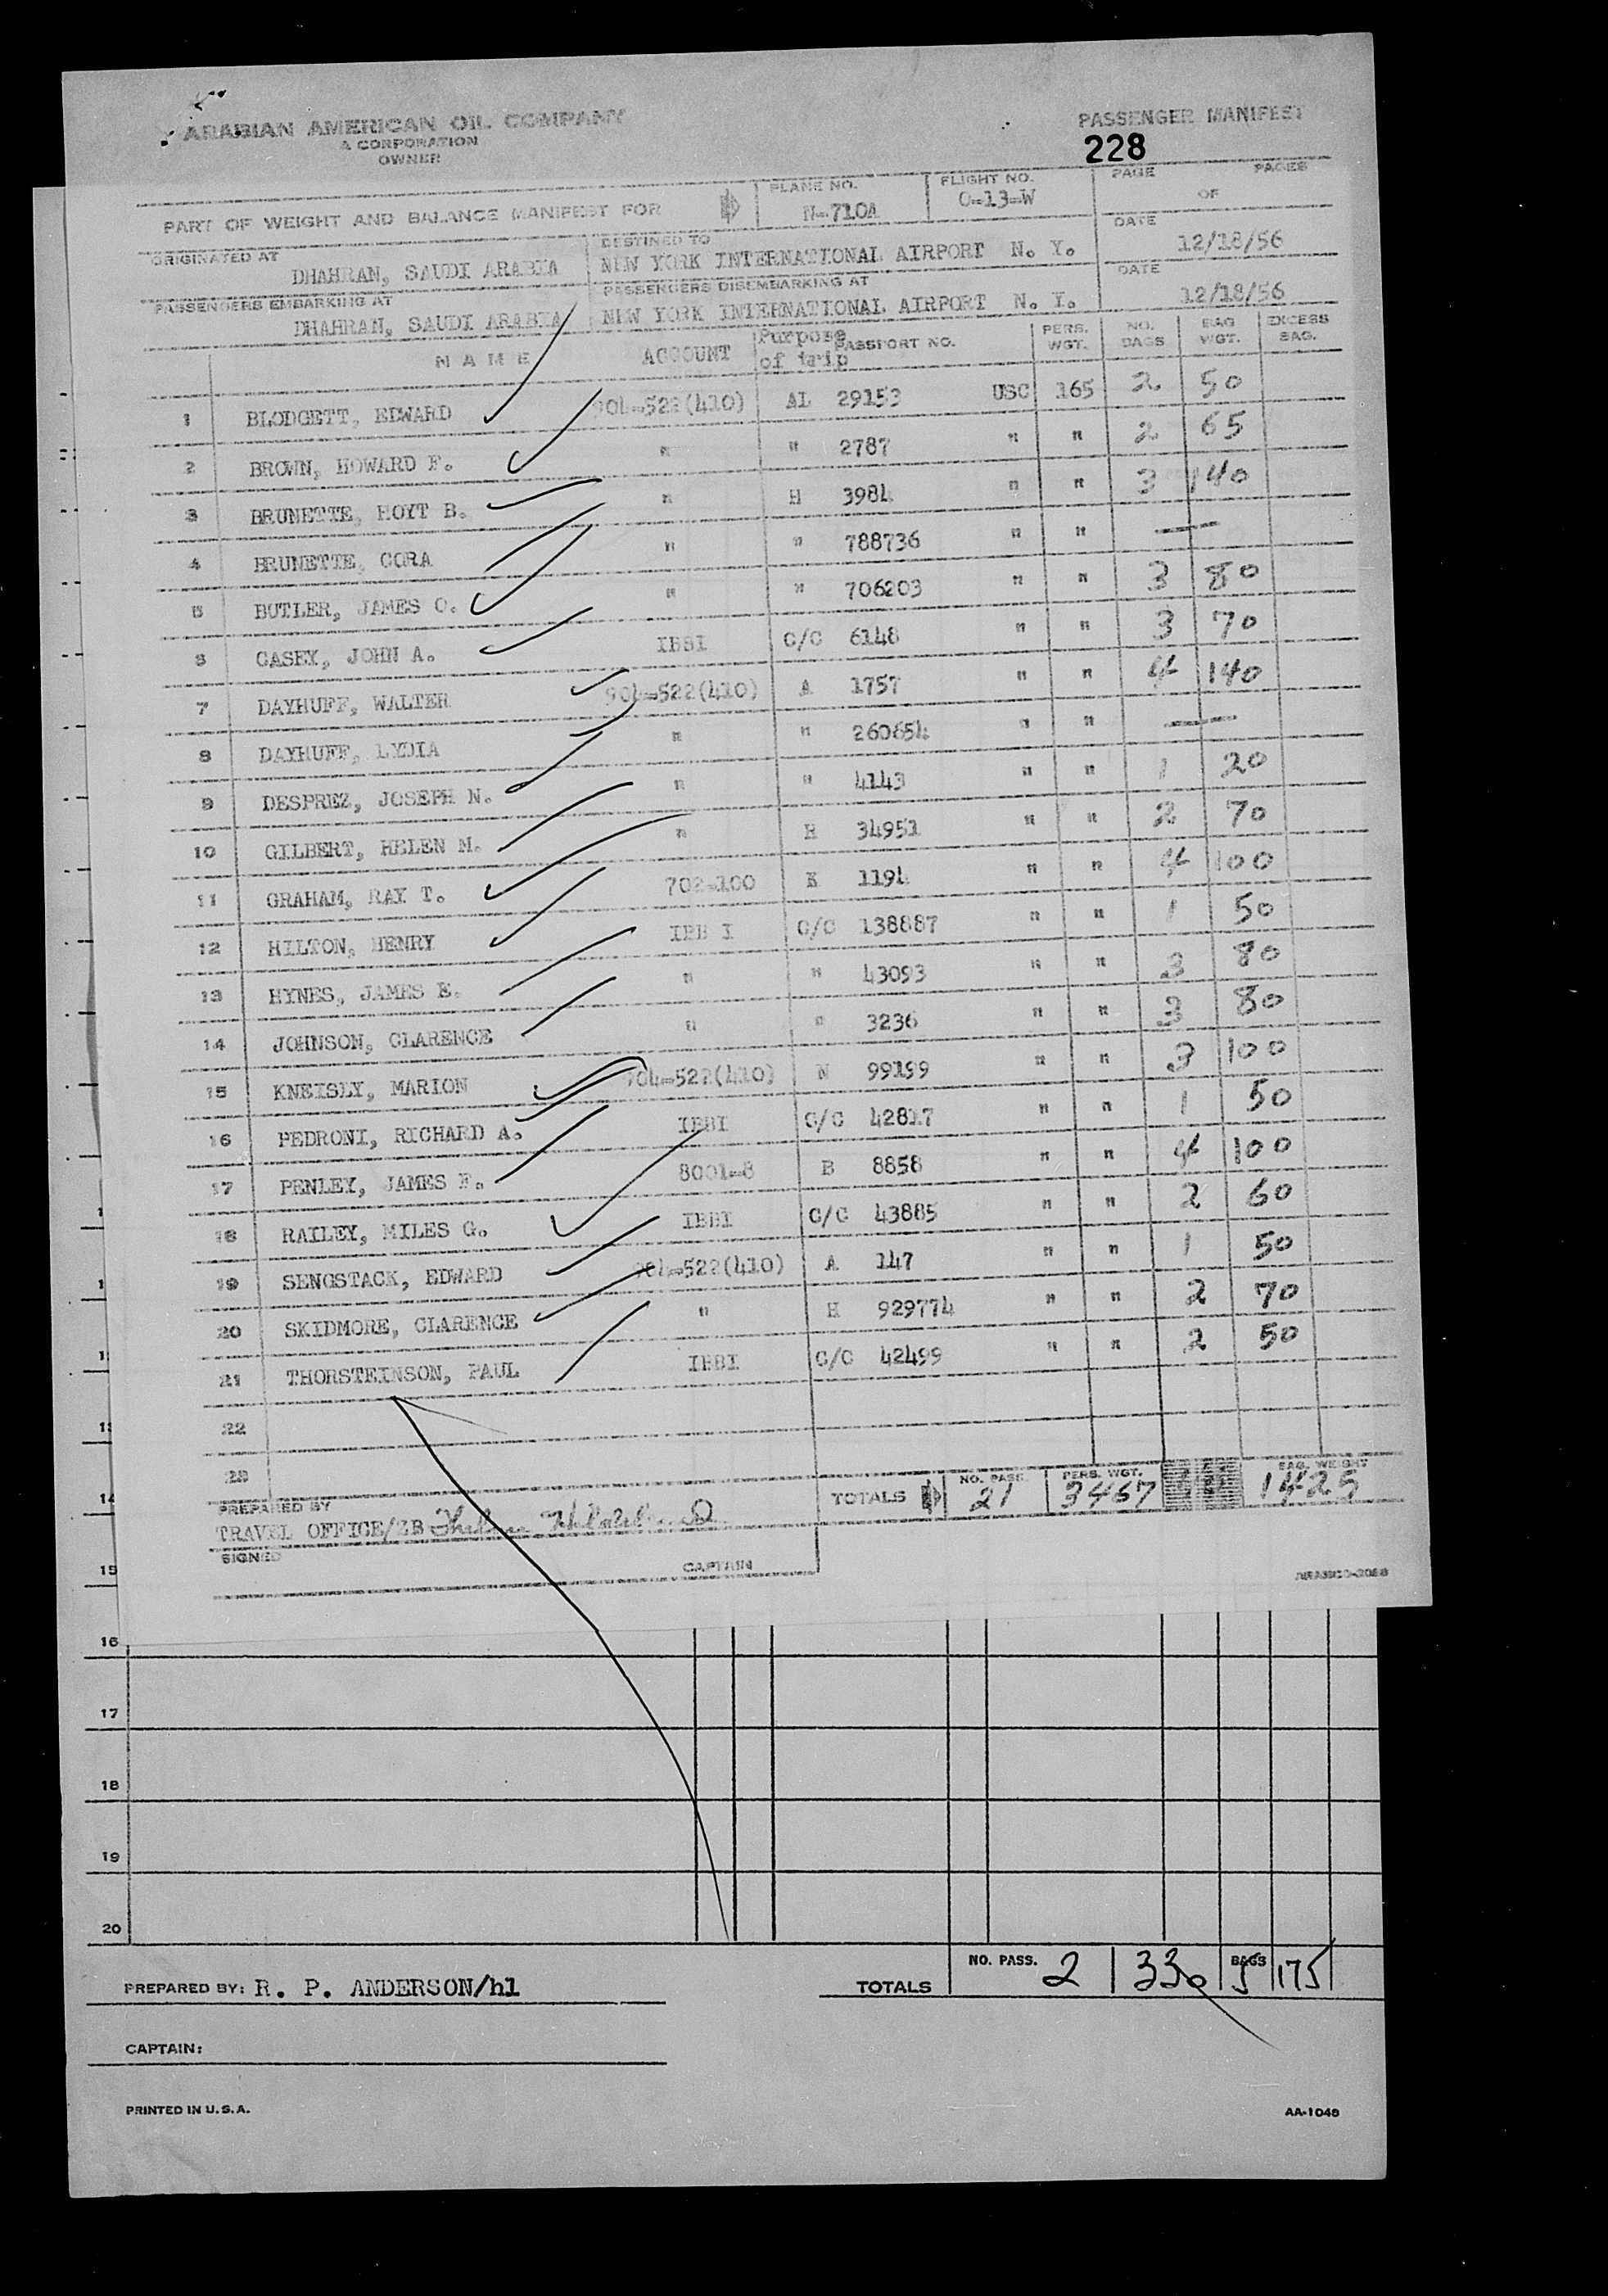 ARABIAN AMERICAN OIL COMPANY
A CORPORATION
OWNER
PASSENGER MANIFEST
228
PART OF WEIGHT AND BALANCE MANIFEST FOR
PLANE NO. N-710A
FLIGHT NO. O-13-W
PAGE OF PAGES
ORIGINATED AT DHAHRAN, SAUDI ARABIA
DESTINED TO NEW YORK INTERNATIONAL AIRPORT N. Y.
DATE 12/18/56
PASSENGERS EMBARKING AT DHAHRAN, SAUDI ARABIA
PASSENGERS DISEMBARKING AT NEW YORK INTERNATIONAL AIRPORT N. Y.
DATE 12/18/56
NAME ACCOUNT Purpose of trip PASSPORT NO. PERS. WGT. NO. BAGS BAG WGT. EXCESS BAG.
1 BLODGETT, EDWARD 904-522(410) AL 29153 USC 165 2 50
2 BROWN, HOWARD F. " " 2787 " " 2 65
3 BRUNETTE, HOYT B. " H 3984 " " 3 140
4 BRUNETTE, CORA " " 788736 " " —
5 BUTLER, JAMES O. " " 706203 " " 3 80
6 CASEY, JOHN A. IBBI C/C 6148 " " 3 70
7 DAYHUFF, WALTER 904-522(410) A 1757 " " 4 140
8 DAYHUFF, LYDIA " " 260654 " " —
9 DESPREZ, JOSEPH N. " " 4143 " " 1 20
10 GILBERT, HELEN M. " H 34951 " " 2 70
11 GRAHAM, RAY T. 702-100 E 1194 " " 4 100
12 HILTON, HENRY IBB I C/C 138887 " " 1 50
13 HYNES, JAMES E. " " 43093 " " 3 80
14 JOHNSON, CLARENCE " " 3236 " " 3 80
15 KNEISLY, MARION 904-522(410) N 99199 " " 3 100
16 PEDRONI, RICHARD A. IBBI C/C 42817 " " 1 50
17 PENLEY, JAMES F. 8001-8 B 8858 " " 4 100
18 RAILEY, MILES G. IBBI C/C 43885 " " 2 60
19 SENGSTACK, EDWARD 904-522(410) A 147 " " 1 50
20 SKIDMORE, CLARENCE " H 929774 " " 2 70
21 THORSTEINSON, PAUL IBBI C/C 42499 " " 2 50
22
23
TOTALS NO. PASS. 21 PERS. WGT. 3467 BAG. WEIGHT 1425
PREPARED BY
TRAVEL OFFICE/ZB
SIGNED CAPTAIN
ARAMCO-2088
15
16
17
18
19
20
PREPARED BY: R. P. ANDERSON/hl
TOTALS NO. PASS. 2 330 BAGS 5 175
CAPTAIN:
PRINTED IN U.S.A.
AA-1048